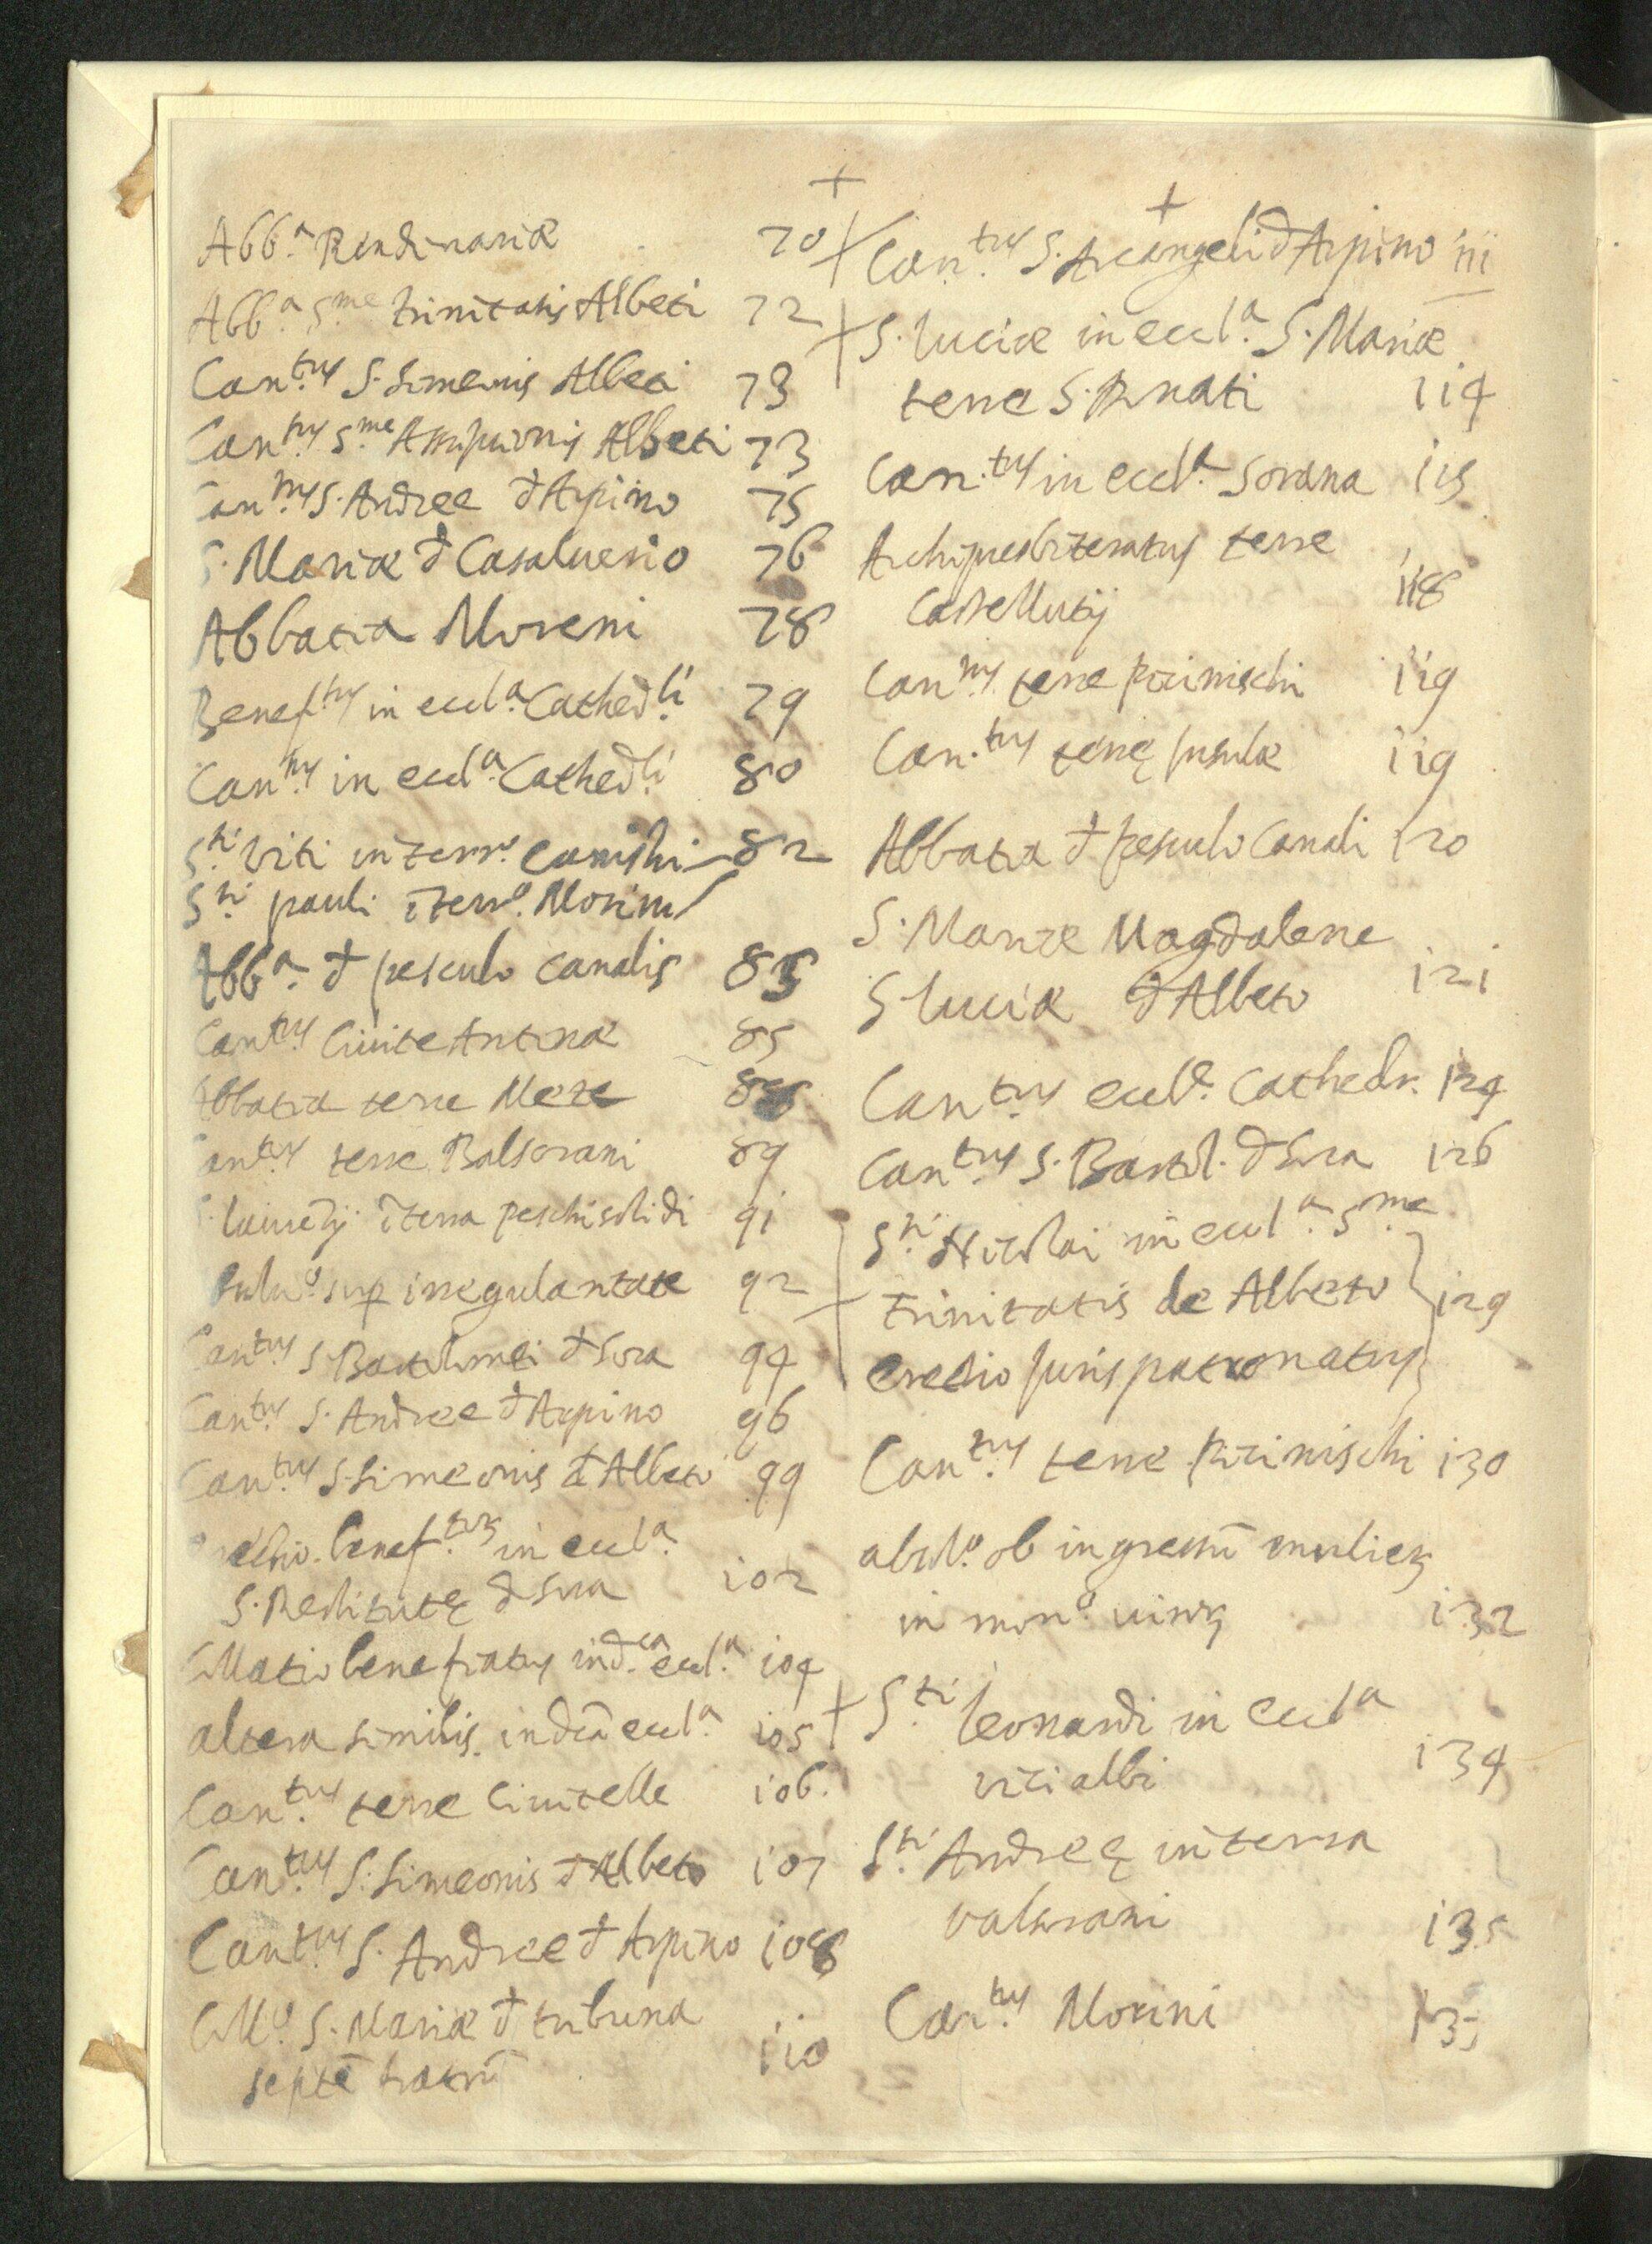 Abb.a Rendinariæ 70
Abb.a S.me trinitatis Albeti 72
Can.tus S. Simeonis Albeti 73
Can.tus S.me Assumptionis Albeti 73
Can.tus S. Andree d Arpino 75
S. Mariæ d Casaluerio 76
Abbatia Moreni 78
Benef.tus in eccl.a Cathed.li 79
Can.tus in eccl.a Cathed.li 80
S.ti viti in terr.o Canistri 82
S.ti pauli i terr.o Morini
Abb.a d pesculo canalis 83
Can.tus Ciuite Antinæ 85
Abbatia terre Mete 88
Can.tus terre Balsorani 89
S. laurētij i terra peschisolidi 91
sup irregularitate 92
Can.tus S. Bartolomei d Sora 94
Can.tus S. Andree d Arpino 96
Can.tus S. Simeonis d Albeto 99
benef. in eccl.a
S. Restitutę d Sora 102
Collatio beneficiatus in d.ca eccl.a 104
altera similis in dcā eccl.a 105
Can.tus terre Ciuitelle 106.
Can.tus S. Simeonis d Albeto 107
Can.tus S. Andree d Arpino 108
Coll.o S. Mariæ d tribuna
septē fratrū 110
+ +
Can.tus S. Arcangeli d Arpino 111
S. luciæ in eccl.a S. Mariæ
terre S. Donati 114
Can.tus in eccl.a Sorana 115
Archipresbiteratus terre
Castellutij 118
Can.tus terre picinischi 119
Can.tus terrę Insulæ 119
Abbatia d pesculo Canali 120
S. Mariæ Magdalene
S. luciæ d Albeto 121
Can.tus eccl.e Cathedr. 124
Can.tus S. Bartol. d Sora 126
S.ti Nicolai in eccl.a S.me
trinitatis de Albeto 129
erectio Juris patronatus
Can.tus terre Picinischi 130
absol.o ob ingressū mulier
in mon.o 132
+ S.ti leonardi in eccl.a
vici albi 134
S.ti Andreę in terra
valsorani 135
Can.tus Morini 135